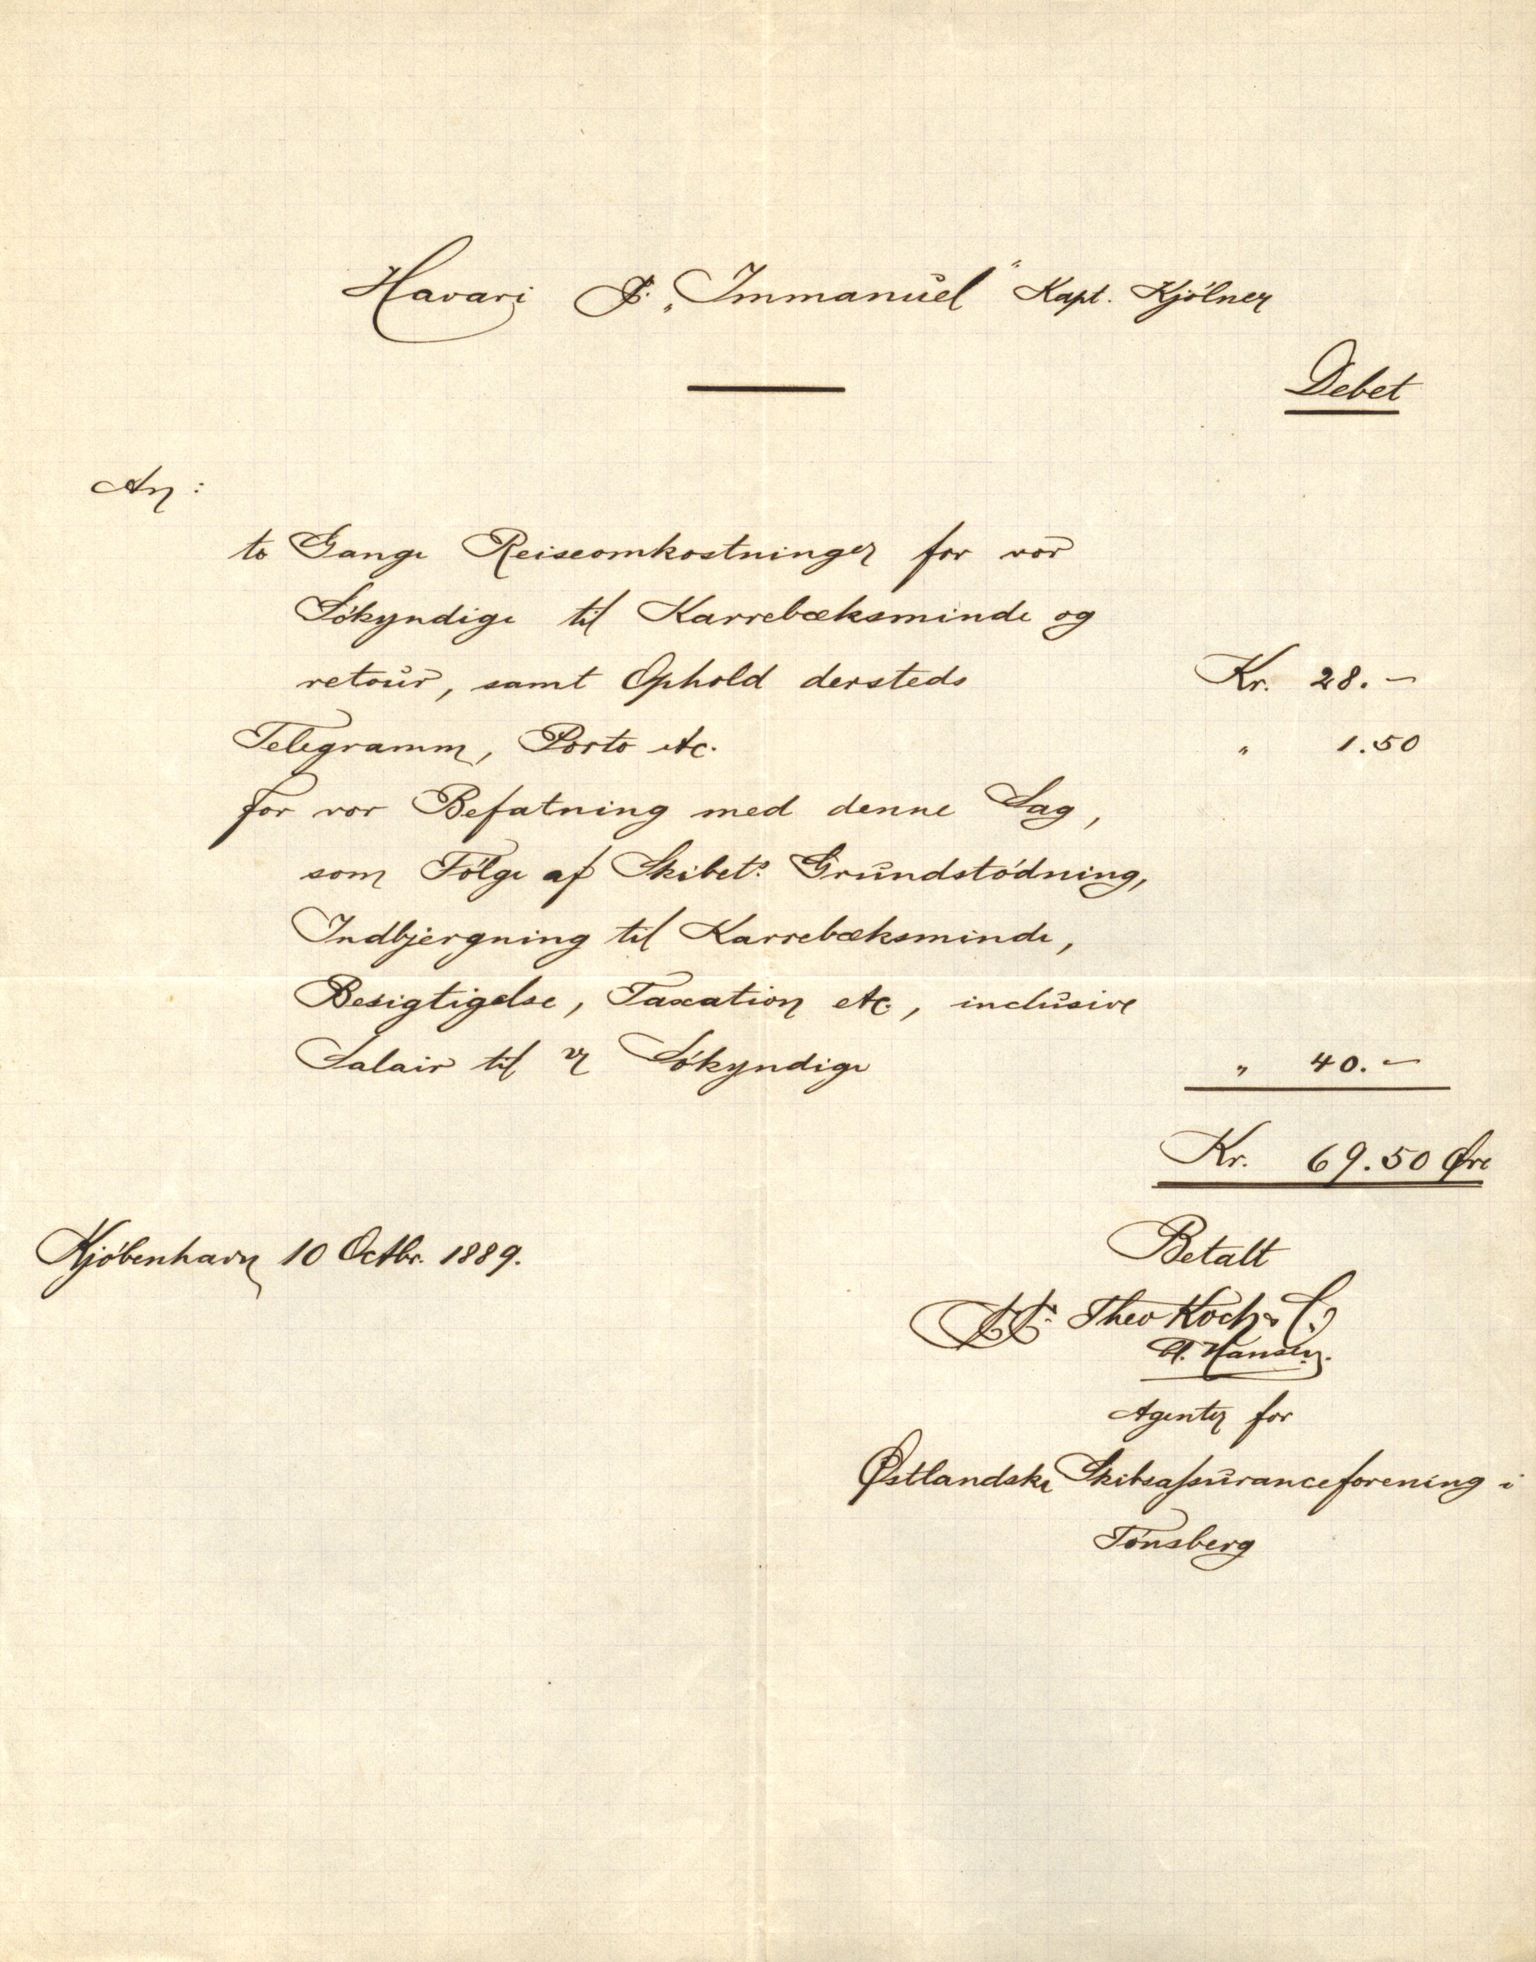 Havari S. „Immanuel“ Kapt. Kjölner
Debet
An:
to Gange Reiseomkostninger for vor
Sökyndige til Karrebæksminde og
retour, samt Ophold dersteds Kr. 28.—
Telegramm, Porto etc. „ 1.50
for vor Befatning med denne Sag,
som Fölge af Skibets Grundstödning,
Indbjergning til Karrebæksminde,
Besigtigelse, Taxation etc., inclusive
Salair til Sökyndige „ 40.—
Kr. 69.50 Øre
Kjöbenhavn 10 Octbr. 1889.
Betalt
Theo Koch & C.
Hansen.
Agenter for
Østlandske Skibsassuranceforening i
Tönsberg